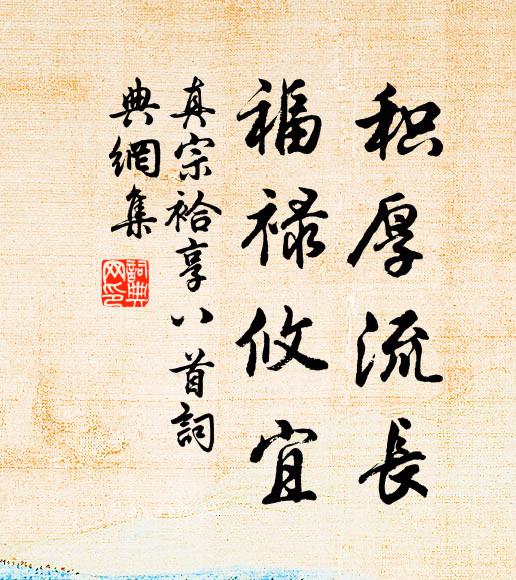 积厚流长
福禄攸宜
真宗祫享八首詞
典網集
詞典
网印